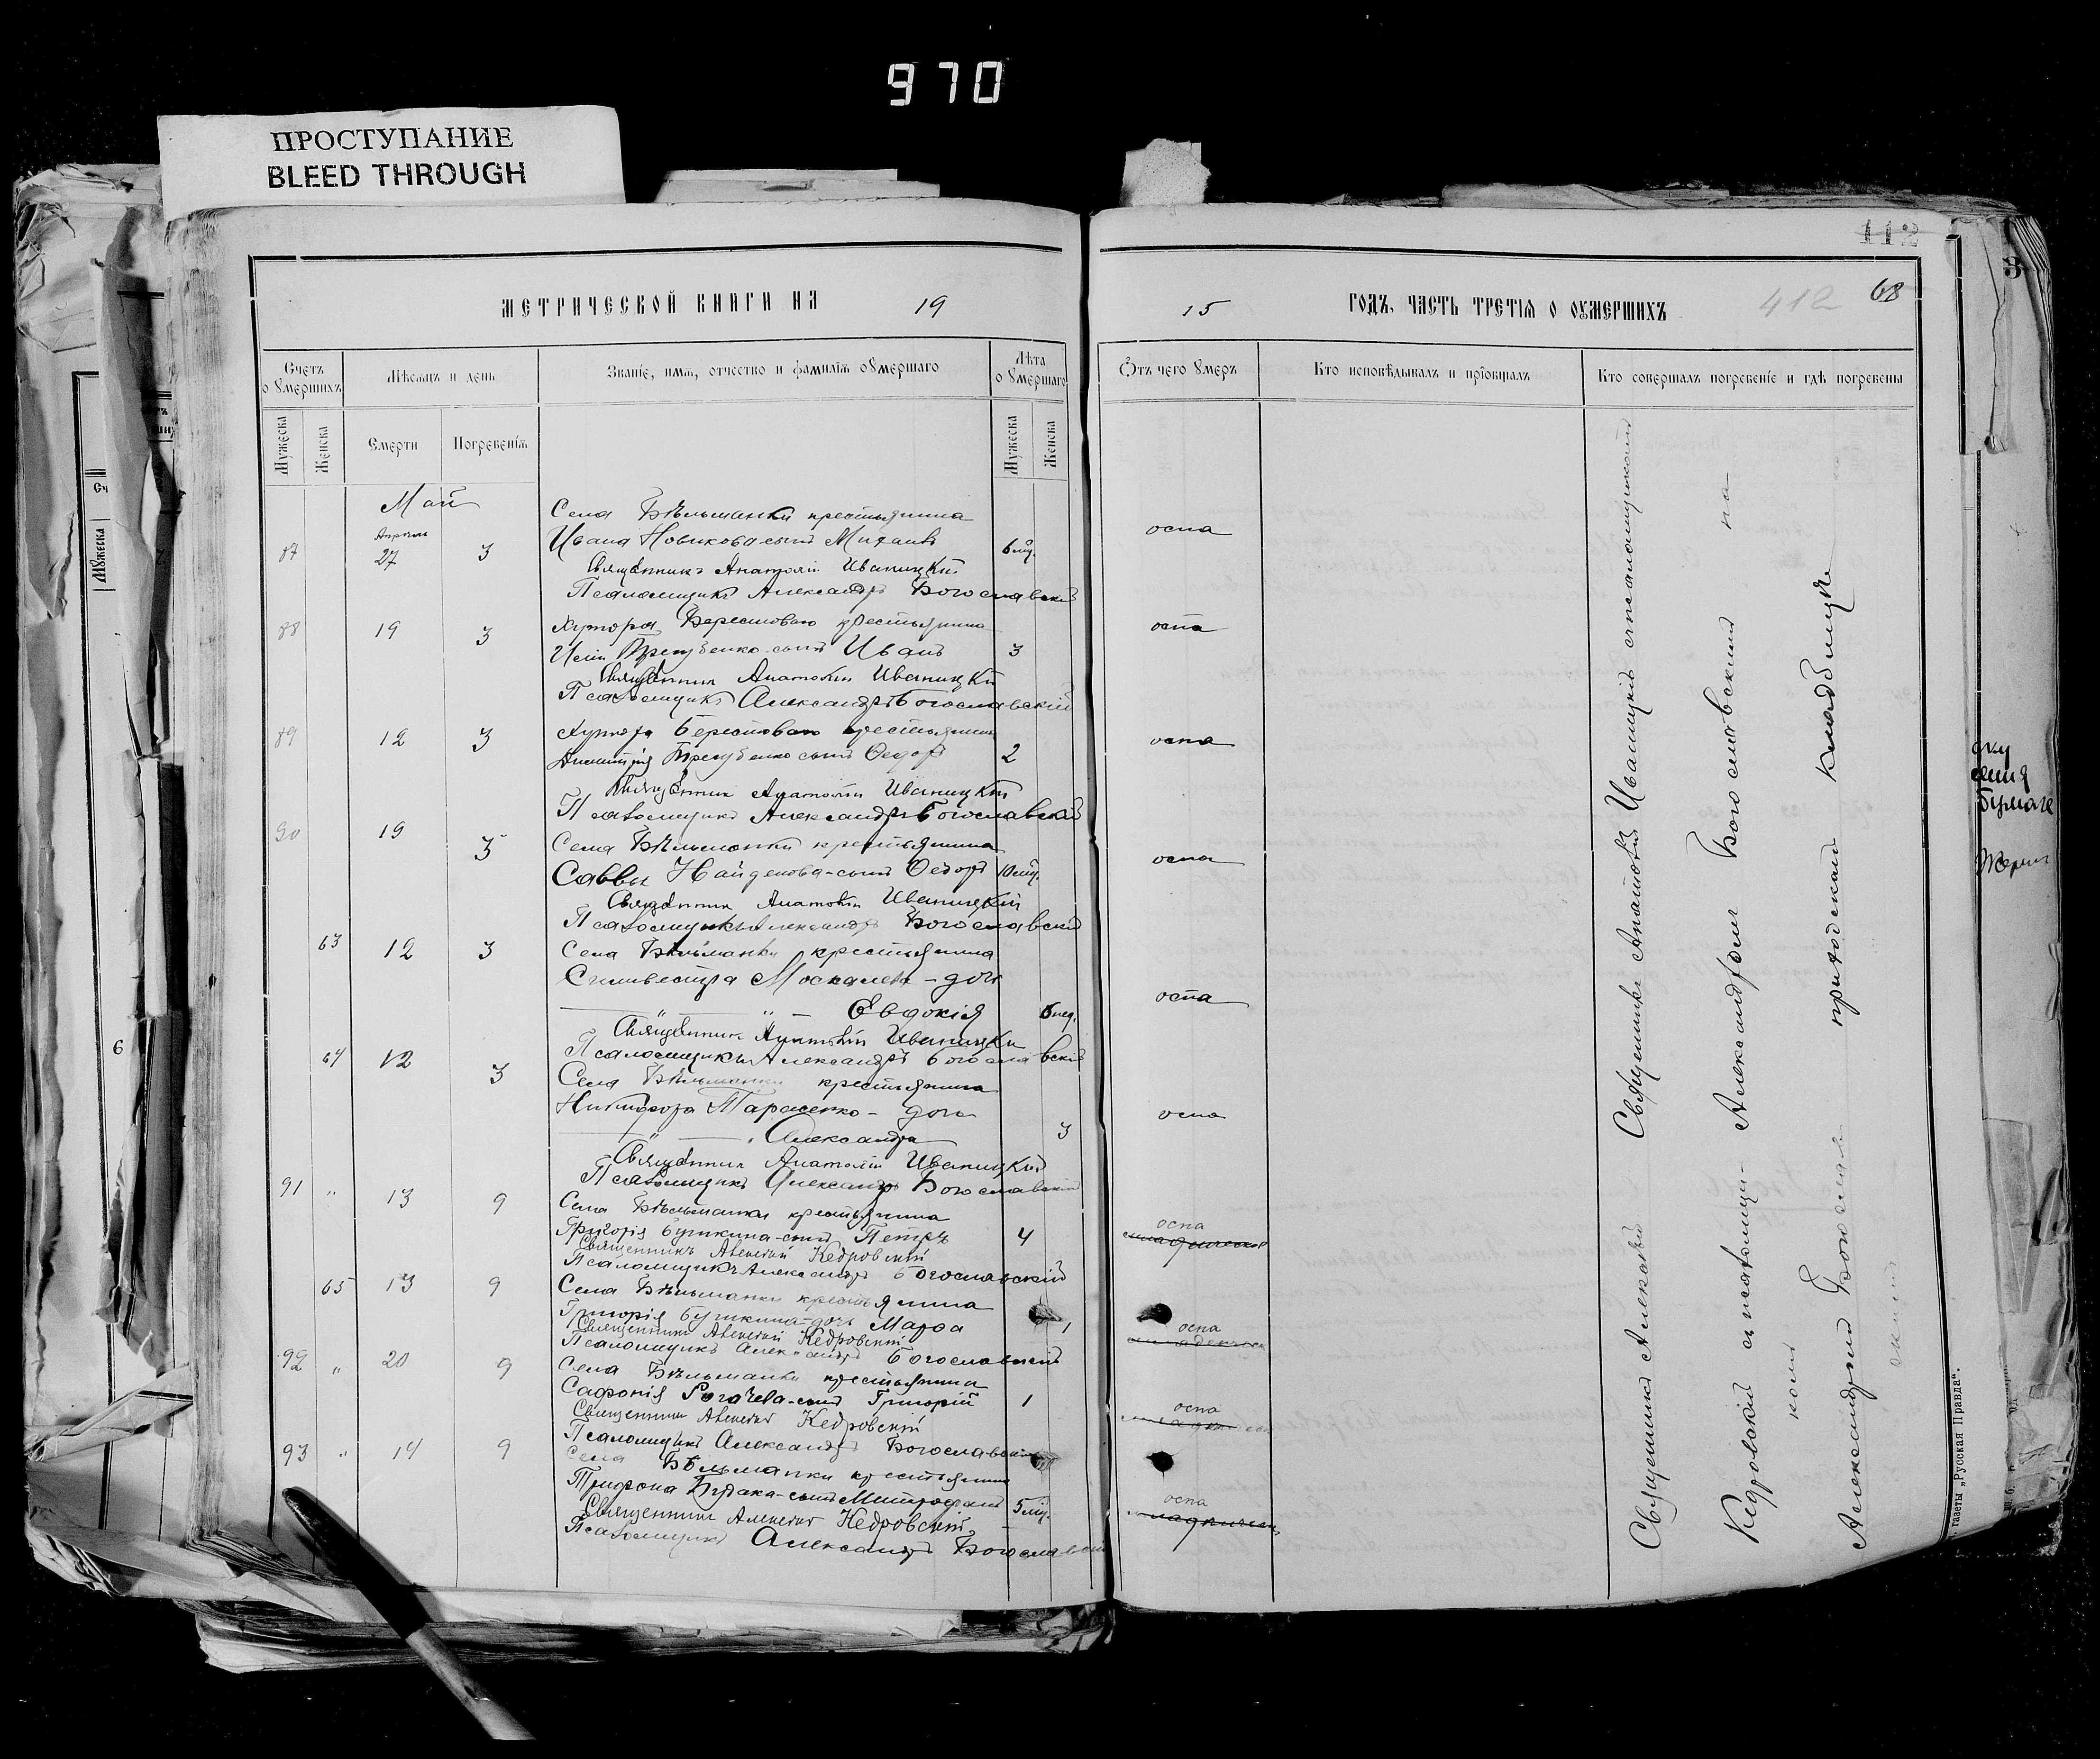 970
ПРОСТУПАНИЕ
BLEED THROUGH
112
68
412
МЕТРИЧЕСКОЙ КНИГИ НА 19
15 ГОДЪ, ЧАСТЬ ТРЕТІѦ О ОУМЕРШИХЪ
Счетъ о умершихъ
Мѣсяцъ и день
Званіе, имя, отчество и фамилія оумершаго
Лѣта оумершаго
Отъ чего умеръ
Кто исповѣдывалъ и пріобщалъ
Кто совершалъ погребеніе и гдѣ погребены
Мужеска
Женска
Смерти
Погребенія
Мужеска
Женска
Май
Села Бѣльманки крестьянина
87 Апрѣля 27 3 Ивана Новикова сынъ Михаилъ 6 мц. оспа
Священникъ Анатолій Иваницкій
Псаломщикъ Александръ Богославскій
88 19 3 Хутора Берестоваго крестьянина оспа
сынъ Иванъ 3
Священник Анатолій Иваницкій
Псаломщикъ Александръ Богославскій
89 12 3 Хутора Берестоваго крестьянина оспа
Димитрія сынъ Ѳедоръ 2
Священник Анатолій Иваницкій
Псаломщикъ Александръ Богославскій
90 19 3 Села Бѣльманки крестьянина оспа
Саввы Найденова-сынъ Ѳедоръ 10 мц.
Священник Анатолій Иваницкій
Псаломщикъ Александръ Богославскій
63 12 3 Села Бѣльманки крестьянина
Сильвестра Москалева - дочь оспа
Евдокія 6 нед.
Священник Анатолій Иваницкій
Псаломщикъ Александръ Богославскій
64 12 3 Села Бѣльманки крестьянина
Никифора Тарасенко - дочь оспа
Александра 3
Священник Анатолій Иваницкій
Псаломщикъ Александръ Богославскій
91 " 13 9 Села Бѣльманки крестьянина
Григорія сынъ Петръ 4 оспа
Священникъ Алексѣй Кедровскій
Псаломщикъ Александръ Богославскій
65 13 9 Села Бѣльманки крестьянина
Григорія дочь Марѳа 1 оспа
Священникъ Алексѣй Кедровскій
Псаломщикъ Александръ Богославскій
92 " 20 9 Села Бѣльманки крестьянина
Сафонія Рогачева-сынъ Григорій 1 оспа
Священникъ Алексѣй Кедровскій
Псаломщикъ Александръ Богославскій
93 " 14 9 Села Бѣльманки крестьянина
Трифона сынъ Митрофанъ 5 мц. оспа
Священникъ Алексѣй Кедровскій
Псаломщикъ Александръ Богославскій
Священникъ Алексѣй Священникъ Анатолій Иваницкій съ псаломщикомъ
Кедровскій съ псаломщи- Александромъ Богославскимъ на
комъ
Александромъ Богослав- приходскомъ кладбищѣ
скимъ
газеты „Русская Правда“.
6
3